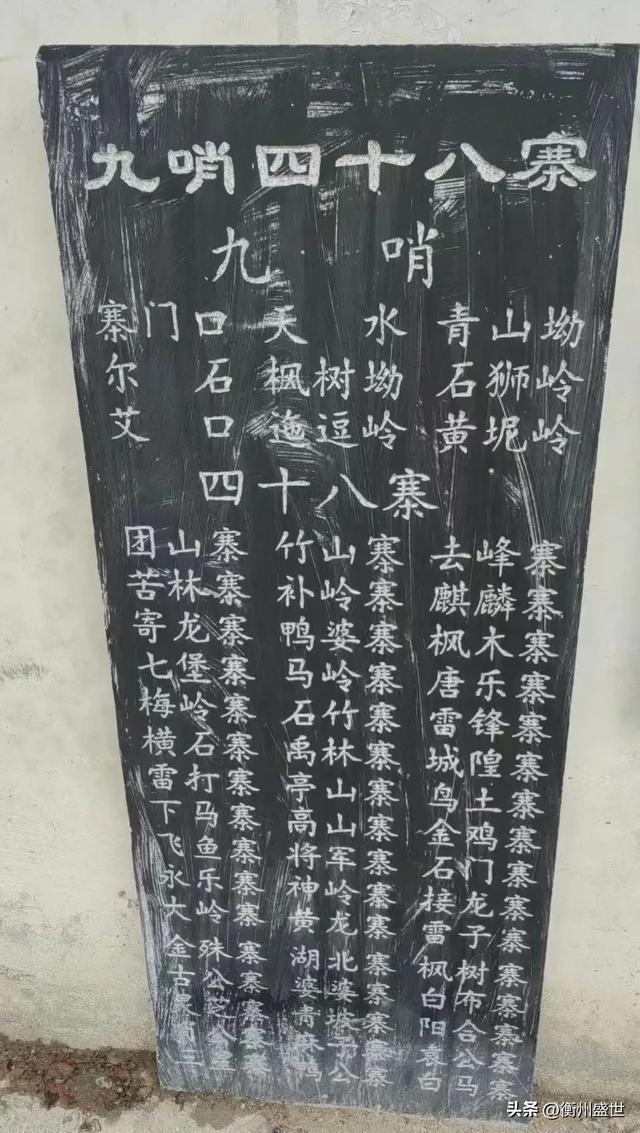 九哨四十八寨
九哨
寨门口 天水 青山坳
尔石 枫树坳 石狮岭
艾口 迤逗岭 黄坭岭
四十八寨
团山寨 竹山寨 去峰寨
苦林寨 补岭寨 麒麟寨
寄龙寨 鸭婆寨 枫木寨
七堡寨 马岭寨 唐乐寨
梅岭寨 石竹寨 雷锋寨
横石寨 禹林寨 城隍寨
雷打寨 亭山寨 鸟土寨
下马寨 高山寨 金鸡寨
飞鱼寨 将军寨 石门寨
永乐寨 神岭寨 接龙寨
大岭寨 黄龙寨 雷子寨
金殊寨 湖北寨 枫树寨
古公寨 婆婆寨 白布寨
寨 青坡寨 阳合寨
公寨 寨 袁公寨
三寨 鸭公寨 白马寨
头条 @衡州盛世